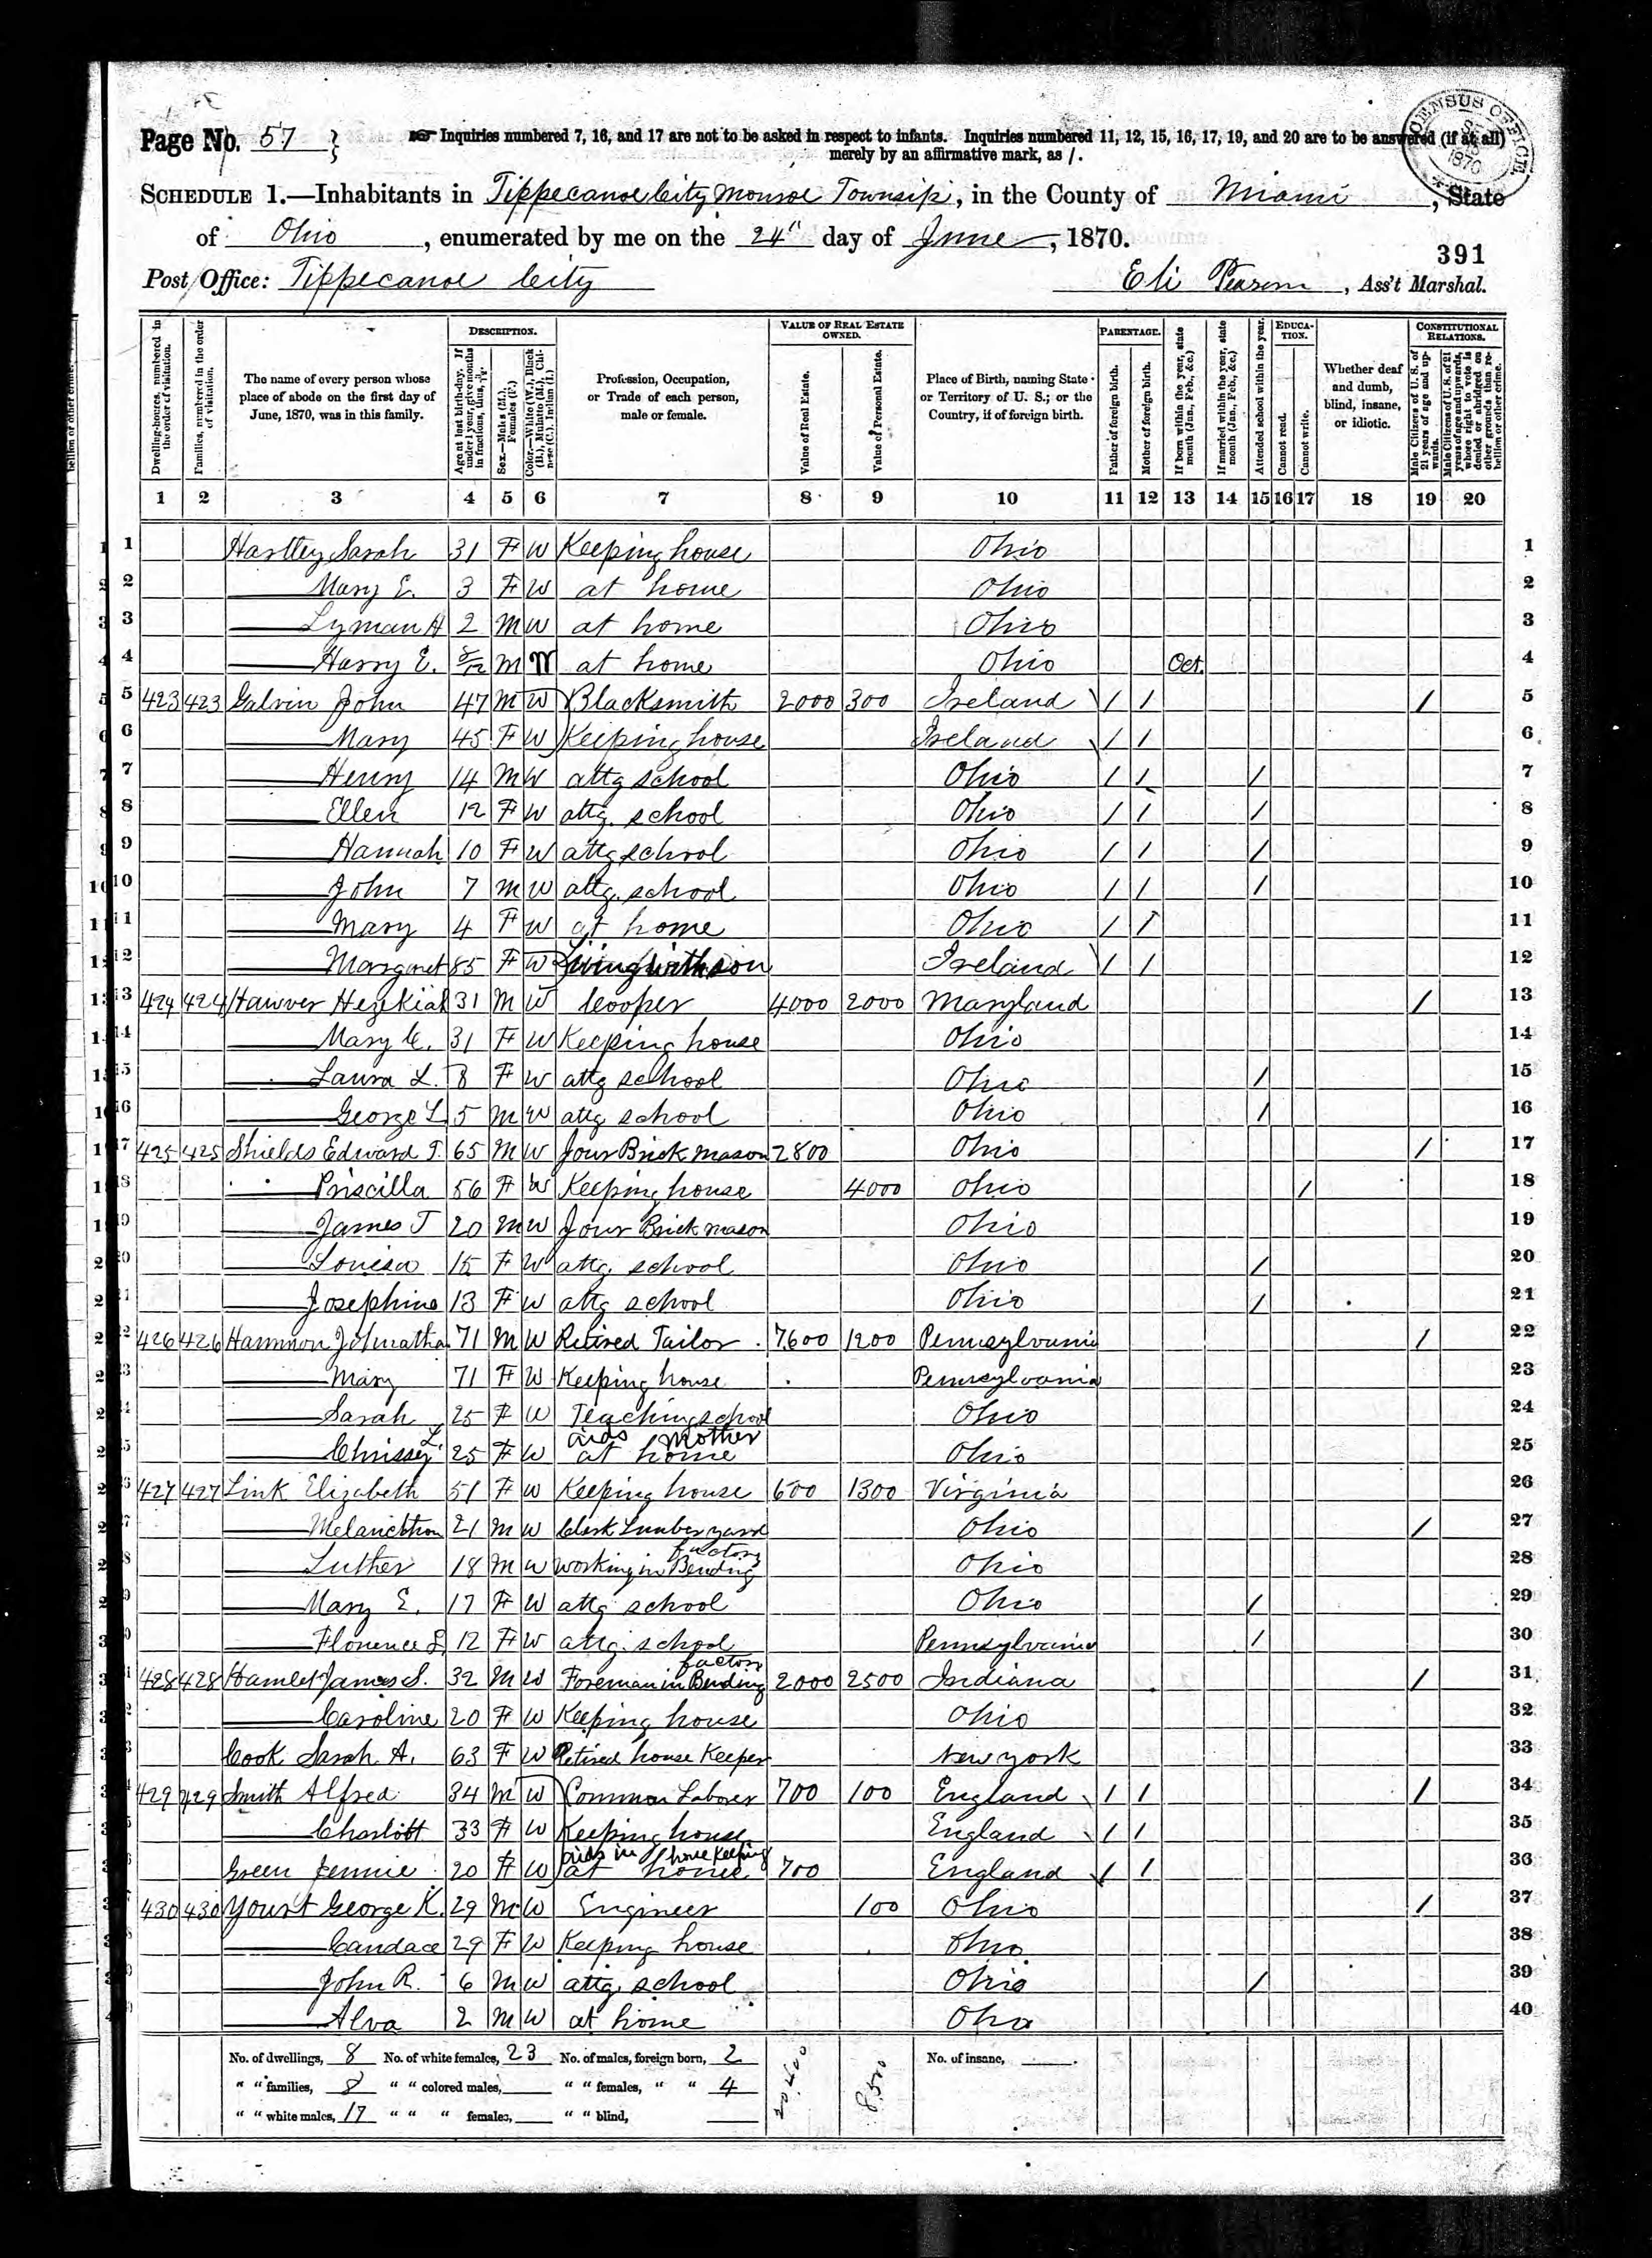 Page No. 57 } ☞ Inquiries numbered 7, 16, and 17 are not to be asked in respect to infants. Inquiries numbered 11, 12, 15, 16, 17, 19, and 20 are to be answered (if at all)
merely by an affirmative mark, as /.
CENSUS OFFICE 1870
SCHEDULE 1.—Inhabitants in Tippecanoe City Monroe Townsip, in the County of Miami, State
of Ohio, enumerated by me on the 24" day of June, 1870.
391
Post Office: Tippecanoe City Eli Pearson, Ass't Marshal.
Dwelling-houses, numbered in the order of visitation.
Families, numbered in the order of visitation.
The name of every person whose place of abode on the first day of June, 1870, was in this family.
DESCRIPTION.
Age at last birth-day. If under 1 year, give months in fractions, thus, 3/12
Sex.—Males (M.), Females (F.)
Color.—White (W.), Black (B.), Mulatto (M.), Chinese (C.), Indian (I.)
Profession, Occupation, or Trade of each person, male or female.
VALUE OF REAL ESTATE OWNED.
Value of Real Estate.
Value of Personal Estate.
Place of Birth, naming State or Territory of U. S.; or the Country, if of foreign birth.
PARENTAGE.
Father of foreign birth.
Mother of foreign birth.
If born within the year, state month (Jan., Feb., &c.)
If married within the year, state month (Jan., Feb., &c.)
Attended school within the year.
EDUCATION.
Cannot read.
Cannot write.
Whether deaf and dumb, blind, insane, or idiotic.
CONSTITUTIONAL RELATIONS.
Male Citizens of U. S. of 21 years of age and upwards.
Male Citizens of U. S. of 21 years of age and upwards, whose right to vote is denied or abridged on other grounds than rebellion or other crime.
1 2 3 4 5 6 7 8 9 10 11 12 13 14 15 16 17 18 19 20
1 Hartley Sarah 31 F W Keeping house Ohio 1
2 Mary E. 3 F W at home Ohio 2
3 Lyman H 2 M W at home Ohio 3
4 Harry E. 8/12 M W at home Ohio Oct. 4
5 423 423 Galvin John 47 M W Blacksmith 2000 300 Ireland / / / 5
6 Mary 45 F W Keeping house Ireland / / 6
7 Henry 14 M W attg school Ohio / / / 7
8 Ellen 12 F W attg. school Ohio / / / 8
9 Hannah 10 F W attg school Ohio / / / 9
10 John 7 M W attg. school Ohio / / / 10
11 Mary 4 F W at home Ohio / / 11
12 Margaret 85 F W Living with son Ireland / / 12
13 424 424 Hawver Hezekiah 31 M W Cooper 4000 2000 Maryland / 13
14 Mary C. 31 F W Keeping house Ohio 14
15 Laura L. 8 F W attg school Ohio / 15
16 George L 5 M W attg school Ohio / 16
17 425 425 Shields Edward T. 65 M W Jour Brick Mason 2800 Ohio / 17
18 Priscilla 56 F W Keeping house 4000 Ohio / 18
19 James T 20 M W Jour Brick mason Ohio 19
20 Louisa 15 F W attg. school Ohio / 20
21 Josephine 13 F W attg school Ohio / 21
22 426 426 Hammon Johnatha 71 M W Retired Tailor 7600 1200 Pennsylvania / 22
23 Mary 71 F W Keeping house Pennsylvania 23
24 Sarah 25 F W Teaching school Ohio 24
25 Chrissey L. 25 F W aids Mother at home Ohio 25
26 427 427 Link Elizabeth 51 F W Keeping house 600 1300 Virginia 26
27 Melancthon 21 M W Clerk Lumber yard Ohio / 27
28 Luther 18 M W working in Bending factory Ohio 28
29 Mary E. 17 F W attg school Ohio / 29
30 Florence L 12 F W attg. school Pennsylvania / 30
31 428 428 Hamlet James S. 32 M W Foreman in Bending factory 2000 2500 Indiana / 31
32 Caroline 20 F W Keeping house Ohio 32
33 Cook Sarah A. 63 F W Retired house Keeper New york 33
34 429 429 Smith Alfred 34 M W Common Laborer 700 100 England / / / 34
35 Charlott 33 F W Keeping house England / / 35
36 Green Jennie 20 F W aids in house keeping at home 700 England / / 36
37 430 430 Yount George K. 29 M W Engineer 100 Ohio / 37
38 Candace 29 F W Keeping house Ohio 38
39 John R. 6 M W attg. school Ohio / 39
40 Alva 2 M W at home Ohio 40
No. of dwellings, 8 No. of white females, 23 No. of males, foreign born, 2 20,400 8,500 No. of insane,
" " families, 8 " " colored males, " " females, " " 4
" " white males, 17 " " " females, " " blind,